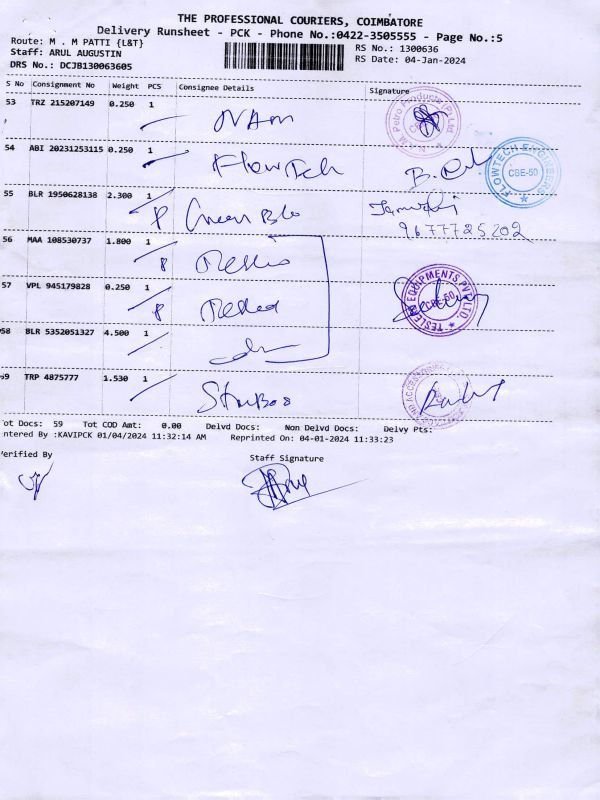 THE PROFESSIONAL COURIERS, COIMBATORE
Delivery Runsheet - PCK - Phone No.:0422-3505555 - Page No.:5
Route: M . M PATTI {L&T}
Staff: ARUL AUGUSTIN
DRS No.: DCJB130063605
RS No.: 1300636
RS Date: 04-Jan-2024
S No Consignment No Weight PCS Consignee Details Signature
53 TRZ 215207149 0.250 1 NAM
54 ABI 20231253115 0.250 1 FlowTech B.
FLOWTECH ENGINEERS CBE-50
55 BLR 1950628138 2.300 1 Green
9677725202
56 MAA 108530737 1.800 1
57 VPL 945179828 0.250 1
EQUIPMENTS PVT LTD. CBE-50
58 BLR 5352051327 4.500 1
59 TRP 4875777 1.530 1
ot Docs: 59 Tot COD Amt: 0.00 Delvd Docs: Non Delvd Docs: Delvy Pts:
ntered By :KAVIPCK 01/04/2024 11:32:14 AM Reprinted On: 04-01-2024 11:33:23
erified By Staff Signature